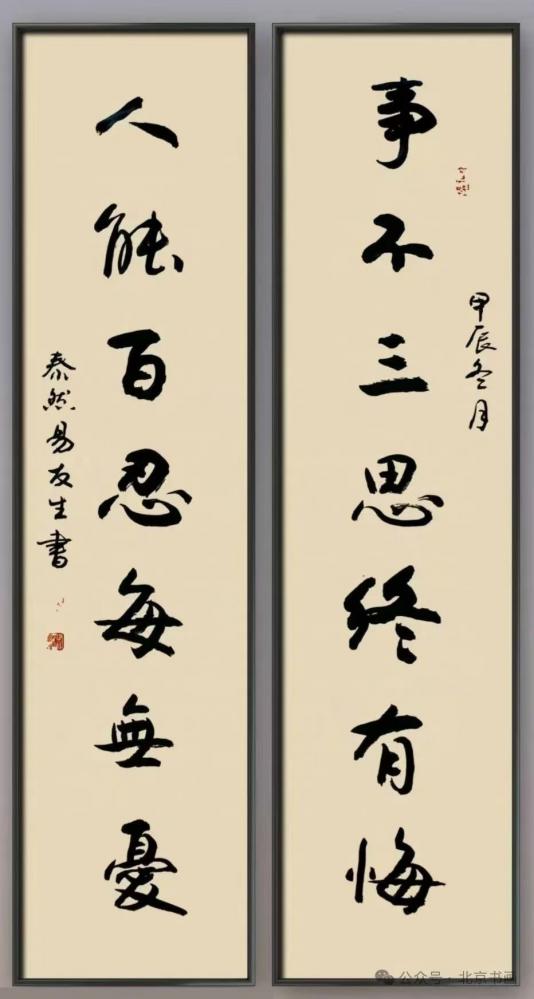 甲辰冬月
事不三思终有悔
人能百忍每無憂
泰然易友生書
公众号·北京书画